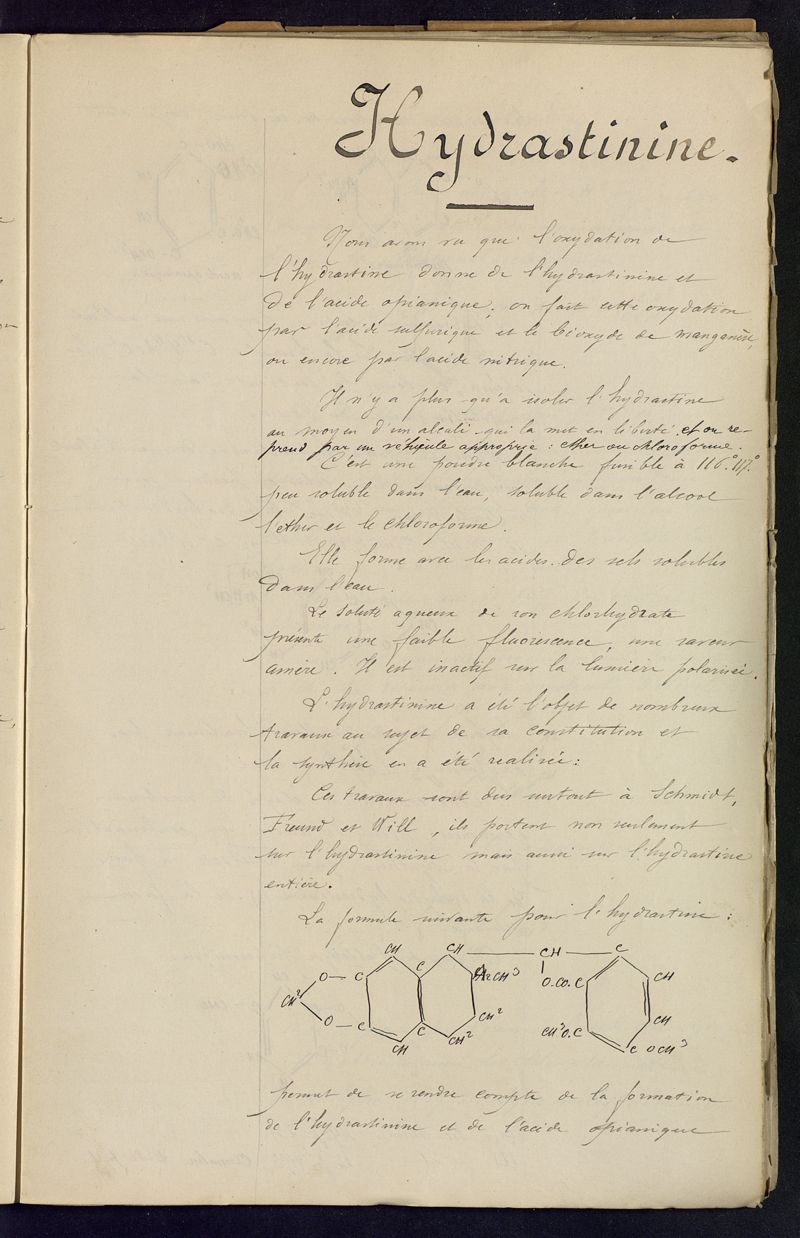 Hydrastinine.
Nous avons vu que l'oxydation de
l'hydrastine donne de l'hydrastinine et
de l'acide opianique; on fait cette oxydation
par l'acide sulfurique et le bioxyde de manganèse,
ou encore par l'acide nitrique.
Il n'y a plus qu'à isoler l'hydrastine
au moyen d'un alcali qui la met en liberté, et on re-
prend par un véhicule approprié : ether ou chloroforme.
C'est une poudre blanche fusible à 116°.117°.
peu soluble dans l'eau, soluble dans l'alcool
l'ether et le chloroforme.
Elle forme avec les acides des sels solubles
dans l'eau.
Le soluté aqueux de son chlorhydrate
présente une faible fluorescence, une saveur
amère. Il est inactif sur la lumière polarisée.
L'hydrastinine a été l'objet de nombreux
travaux au sujet de sa constitution et
la synthèse en a été realisée:
Ces travaux sont dus surtout à Schmidt,
Freund et Will, ils portent non seulement
sur l'hydrastinine mais aussi sur l'hydrastine
entière.
La formule suivante pour l'hydrastine :
CH CH CH C
O C C AzCH³ O.CO.C CH
CH²
O C C CH² CH³O.C CH
CH CH² C OCH³
permet de se rendre compte de la formation
de l'hydrastinine et de l'acide opianique